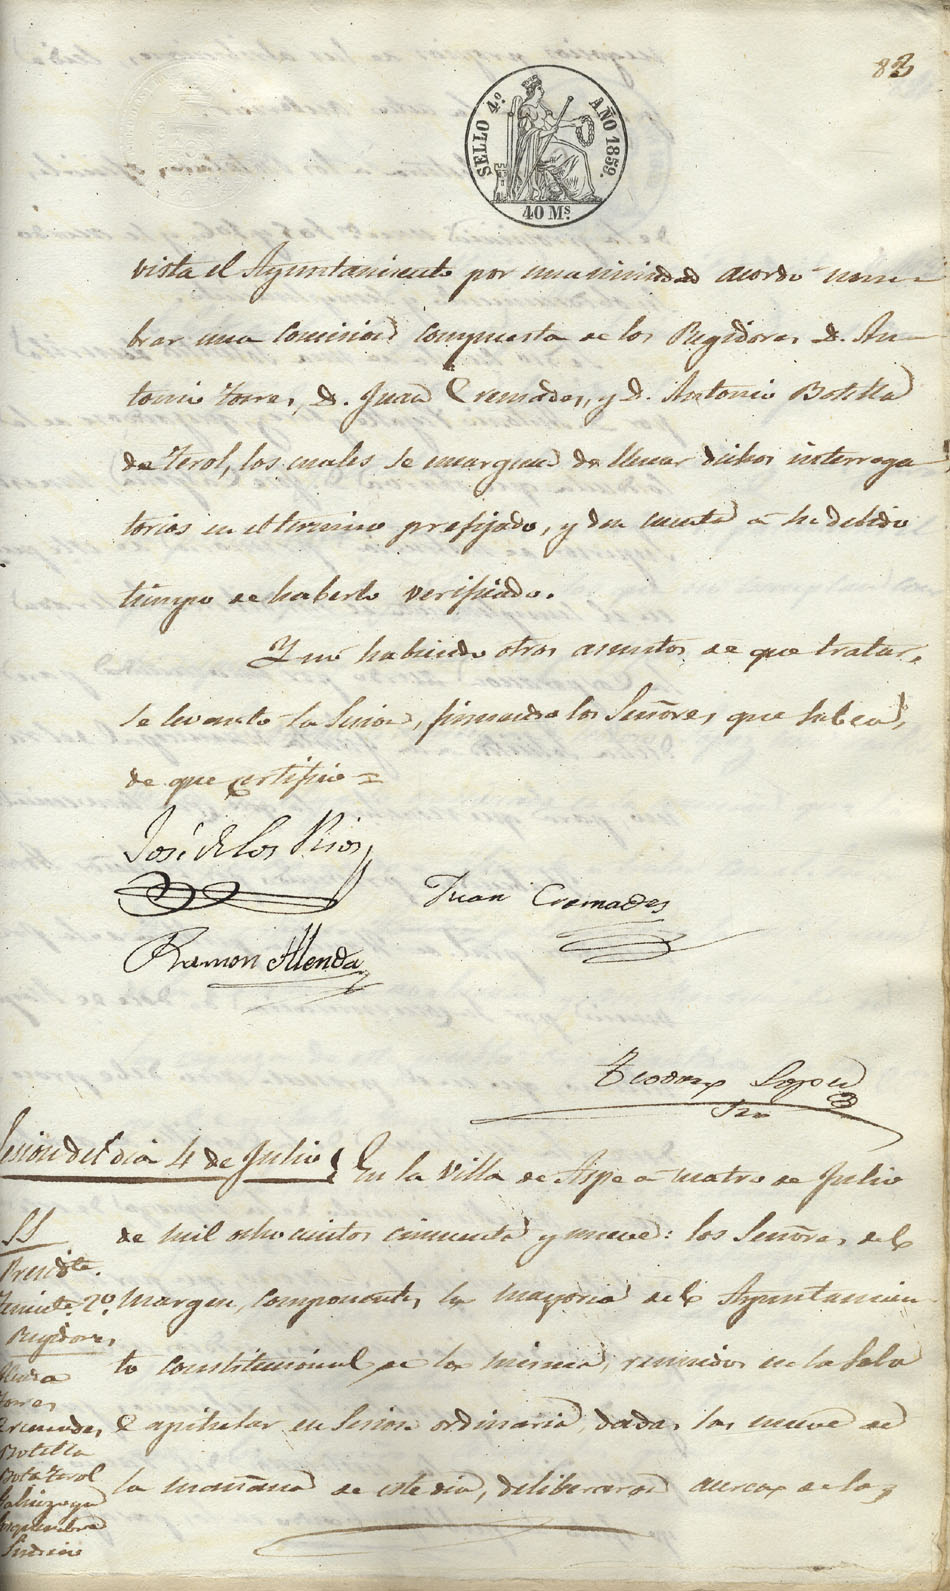 83
SELLO 4.º AÑO 1859.
40 Ms.
vista el Ayuntamiento por unanimidad acordó nom-
brar una Comision compuesta de los Regidores D. An-
tonio Torres, D. Juan Cremades, y D. Antonio Botella
de Terol, los cuales se encarguen de llenar dichos interroga
torios en el termino prefijado, y den cuenta a su debido
tiempo de haberlo verificado.
Y no habiendo otros asuntos de que tratar,
se levantó la Sesion, firmando los Señores que saben,
de que certifico =
José de los Rios
Juan Cremades
Ramon Alenda
Teodoro Lopez
Srio
Sesion del dia 4 de Julio
En la Villa de Aspe a cuatro de Julio
de mil ochocientos cincuenta y nueve: los Señores del
margen, componentes la mayoria del Ayuntamien
to constitucional de la misma, reunidos en la Sala
Capitular en Sesion ordinaria, dadas las nueve de
la mañana de este dia, deliberaron acerca de los
SS
Presidte.
Teniente 2º
Regidores
Alenda
Torres
Cremades
Botella
Bota Terol
Sindico